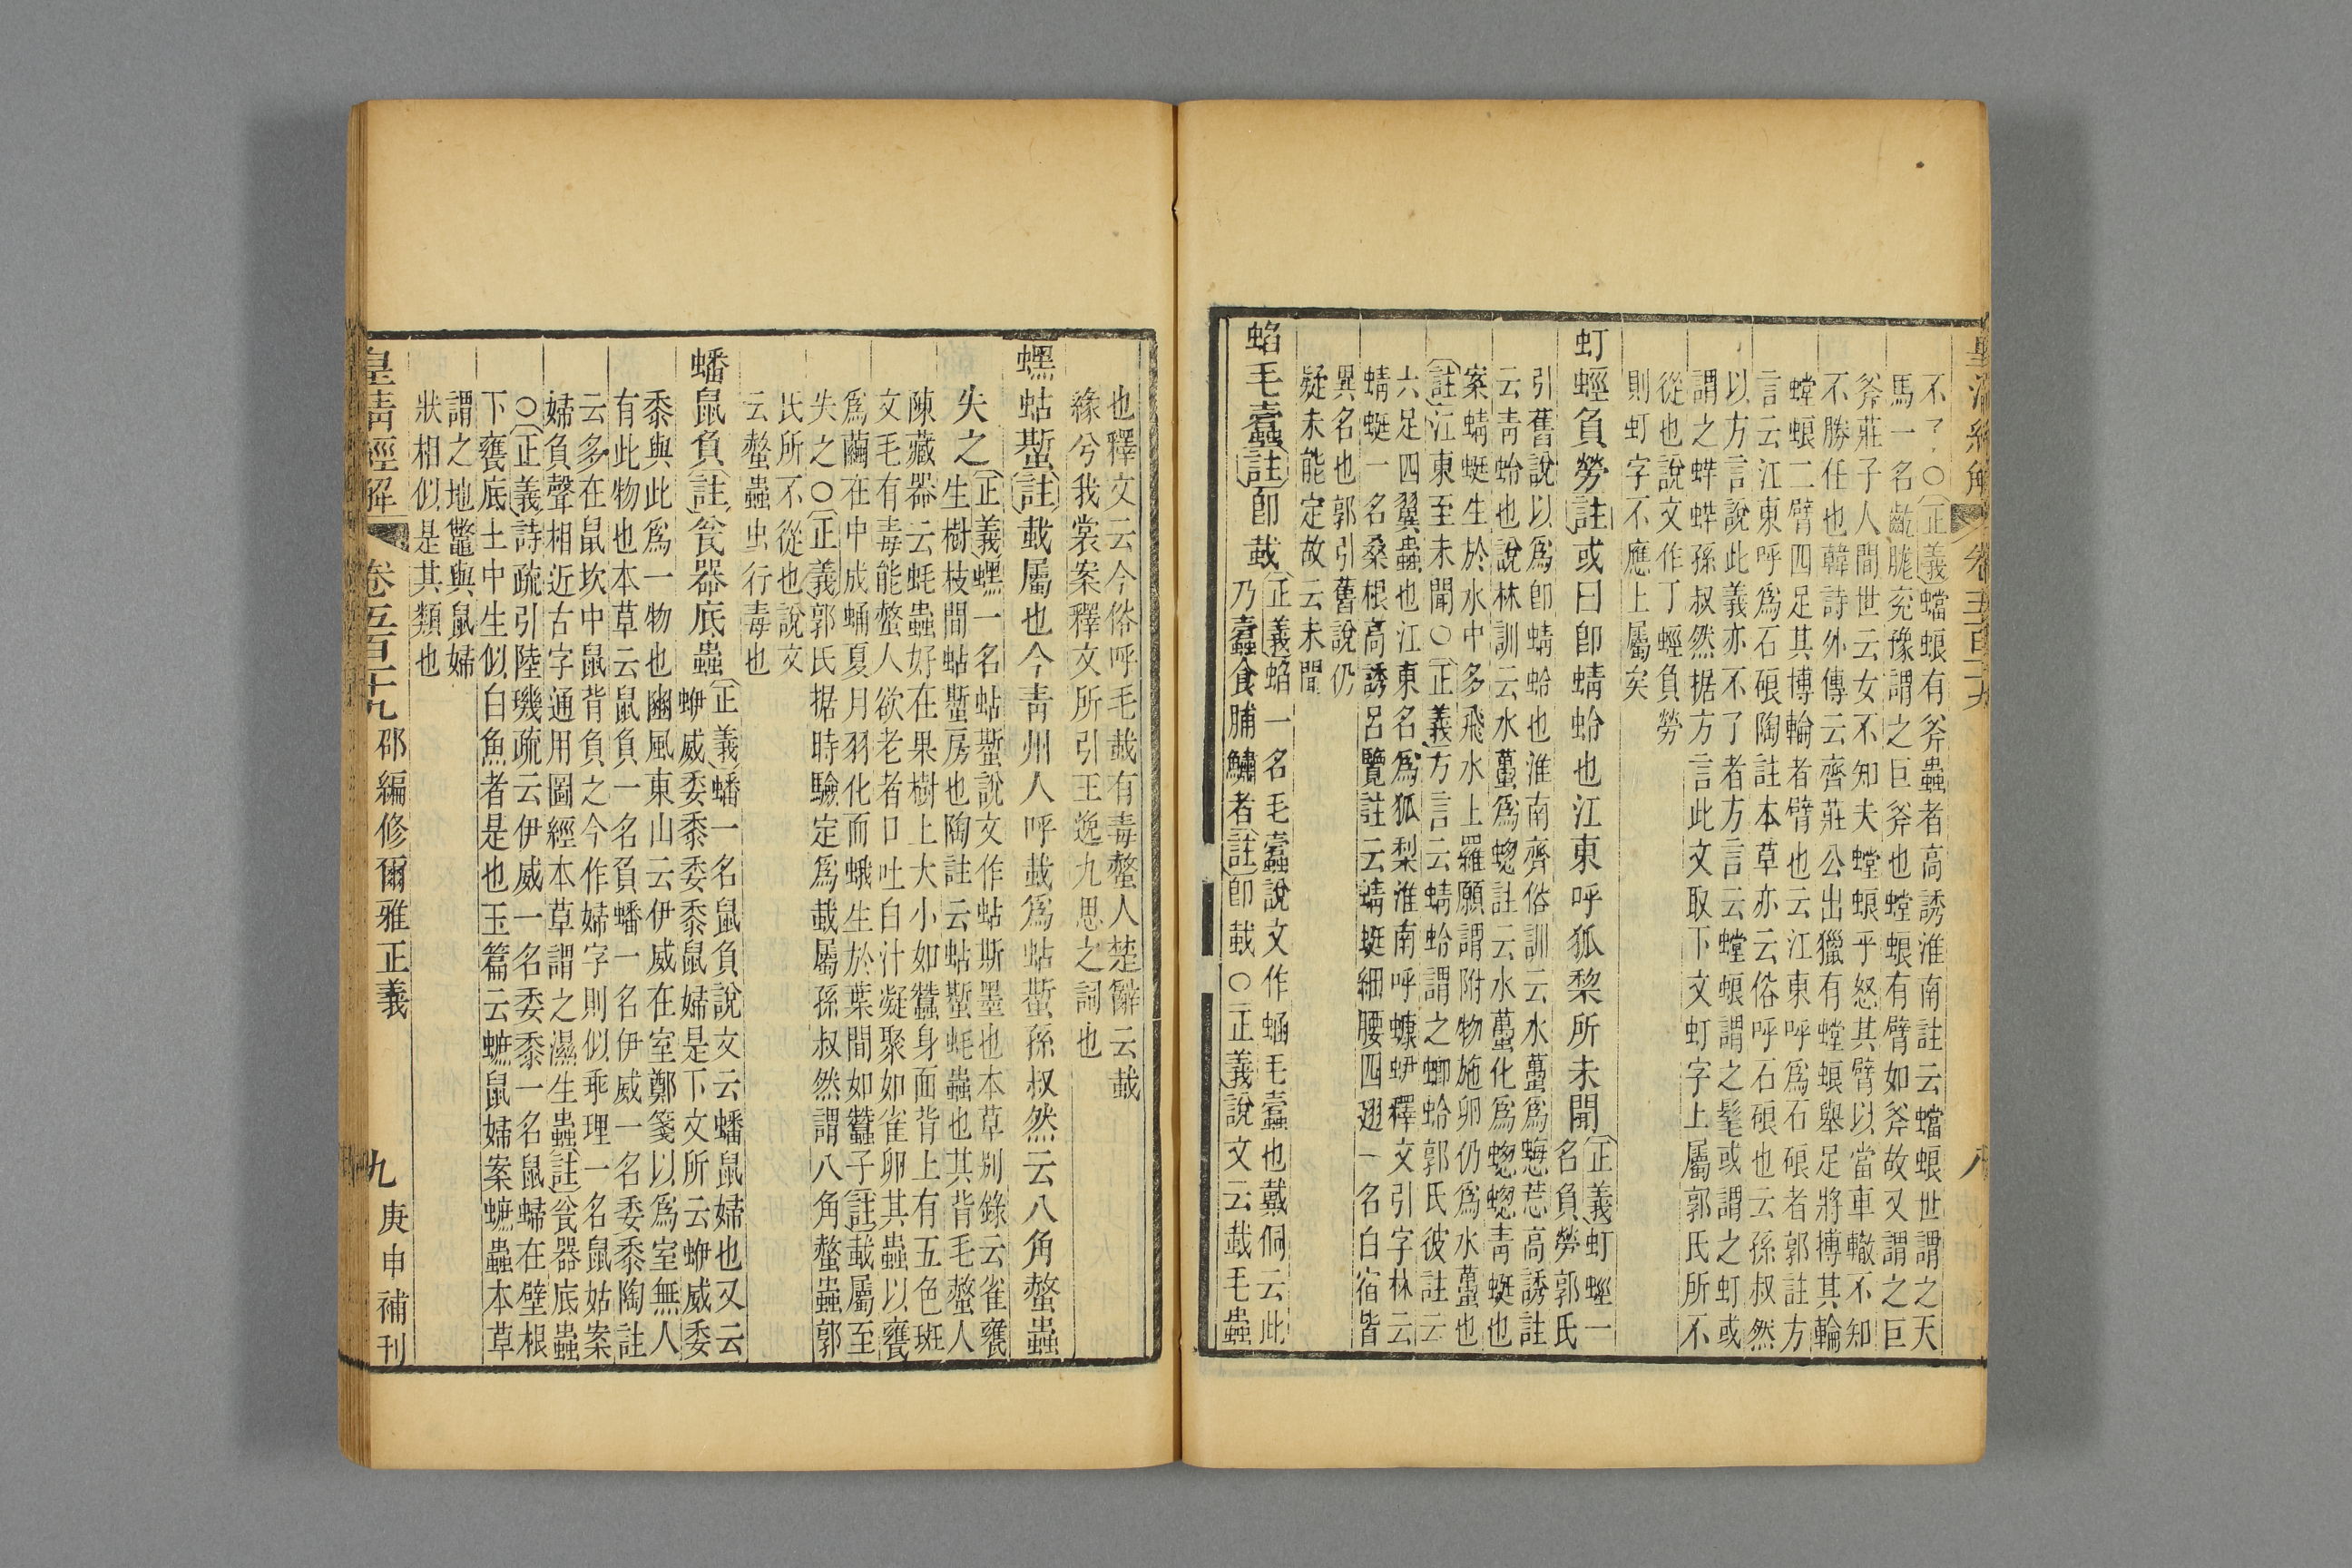 皇清經解 卷五百十九 八
不了○正義蟷蜋有斧蟲者高誘淮南註云蟷蜋世謂之天
馬一名齕肬兖豫謂之巨斧也螳蜋有臂如斧故又謂之巨
斧莊子人間世云女不知夫螳蜋乎怒其臂以當車轍不知
不勝任也韓詩外傳云齊莊公出獵有螳蜋舉足將搏其輪
螳蜋二臂四足其搏輪者臂也云江東呼爲石蜋者郭註方
言云江東呼爲石蜋陶註本草亦云俗呼石蜋也云孫叔然
以方言說此義亦不了者方言云螳蜋謂之髦或謂之虰或
謂之蛘蛘孫叔然据方言此文取下文虰字上屬郭氏所不
從也說文作丁蛵負勞
則虰字不應上屬矣
虰蛵負勞註或曰卽蜻蛉也江東呼狐棃所未聞正義虰蛵一
名負勞郭氏
引舊說以爲卽蜻蛉也淮南齊俗訓云水蠆爲蟌莣高誘註
云靑蛉也說林訓云水蠆爲蟌註云水蠆化爲蟌蟌靑蜓也
案蜻蜓生於水中多飛水上羅願謂附物施卵仍爲水蠆也
註江東至未聞○正義方言云蜻蛉謂之蝍蛉郭氏彼註云
六足四翼蟲也江東名爲狐梨淮南呼蠊蛢釋文引字林云
蜻蜓一名桑根高誘呂覽註云蜻蜓細腰四翅一名白宿皆
異名也郭引舊說仍
疑未能定故云未聞
蛅毛蠹註卽蛓正義蛅一名毛蠹說文作蛅毛蠹也戴侗云此
乃蠹食脯鱐者註卽蛓○正義說文云蛓毛蟲
也釋文云今俗呼毛蛓有毒螫人楚辭云蛓
緣兮我裳案釋文所引王逸九思之詞也
蟔蛅蟴註蛓屬也今靑州人呼蛓爲蛅蟴孫叔然云八角螫蟲
失之正義蟔一名蛅蟴說文作蛅斯墨也本草别錄云雀甕
生樹枝間蛅蟴房也陶註云蛅蟴蚝蟲也其背毛螫人
陳藏器云蚝蟲好在果樹上大小如蠶身面背上有五色斑
文毛有毒能螫人欲老者口吐白汁凝聚如雀卵其蟲以甕
爲繭在中成蛹夏月羽化而蛾生於葉間如蠶子註蛓屬至
失之○正義郭氏据時驗定爲蛓屬孫叔然謂八角螫蟲郭
氏所不從也說文
云螫蟲虫行毒也
蟠鼠負註瓮器底蟲正義蟠一名鼠負說文云蟠鼠婦也又云
蛜威委黍委黍鼠婦是下文所云蛜威委
黍與此爲一物也豳風東山云伊威在室鄭箋以爲室無人
有此物也本草云鼠負一名負蟠一名伊威一名委黍陶註
云多在鼠坎中鼠背負之今作婦字則似乖理一名鼠姑案
婦負聲相近古字通用圖經本草謂之濕生蟲註瓮器底蟲
○正義詩疏引陸璣疏云伊威一名委黍一名鼠婦在壁根
下甕底土中生似白魚者是也玉篇云蟅鼠婦案蟅蟲本草
謂之地鼈與鼠婦
狀相似是其類也
皇淸經解 卷五百十九 邵編修爾雅正義 九 庚申補刊